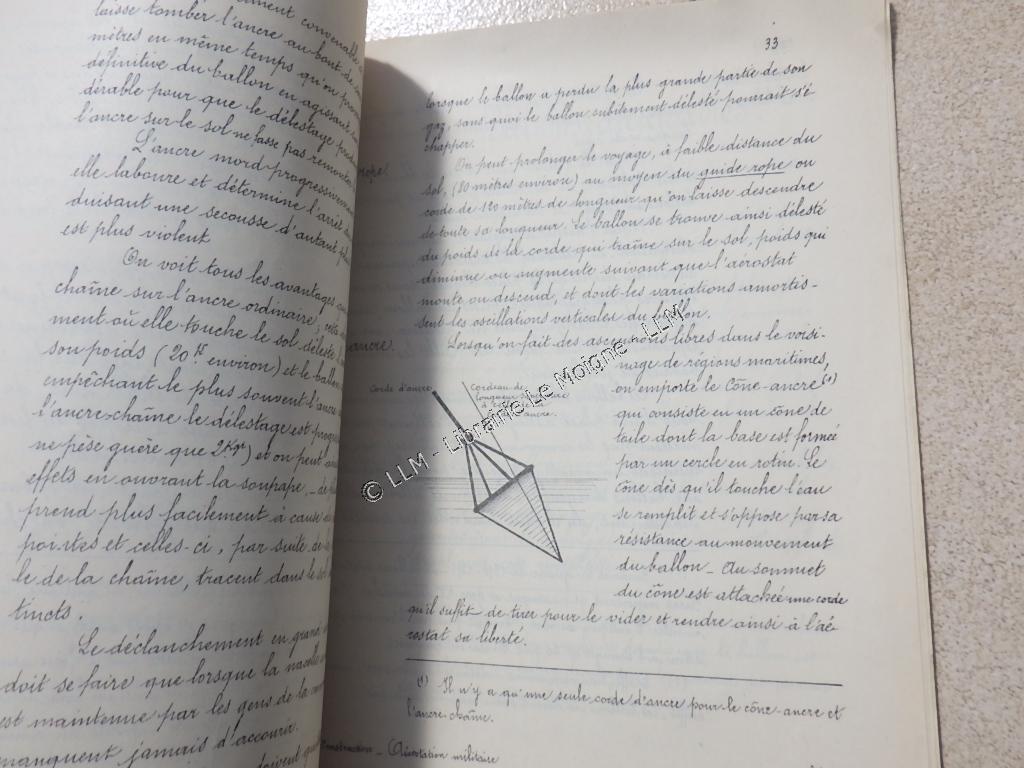 convenable
laisse tomber l'ancre au bout de
mètres en même temps qu'on
définitive du ballon en agissant
dérable pour que le délestage
l'ancre sur le sol ne fasse pas remonter
L'ancre mord progressivement
elle laboure et détermine l'arrêt
duisant une secousse d'autant
est plus violent
On voit tous les avantages
chaîne sur l'ancre ordinaire;
ment où elle touche le sol déleste
son poids (20 environ) et le ballon
empêchant le plus souvent l'ancre
l'ancre-chaîne le délestage est
ne pèse guère que et on peut
effets en ouvrant la soupape.
prend plus facilement à cause
pointes et celles-ci, par suite
le de la chaîne, tracent dans le sol
tincts.
Le déclanchement en grand
doit se faire que lorsque la nacelle
est maintenue par les gens de la
manquent jamais d'accourir.
doivent
33
lorsque le ballon a perdu la plus grande partie de son
gaz, sans quoi le ballon subitement délesté pourrait s'é-
chapper.
On peut prolonger le voyage, à faible distance du
sol, (80 mètres environ) au moyen du guide rope ou
corde de 120 mètres de longueur qu'on laisse descendre
de toute sa longueur. Le ballon se trouve ainsi délesté
du poids de la corde qui traîne sur le sol, poids qui
diminue ou augmente suivant que l'aérostat
monte ou descend, et dont les variations amortis-
sent les oscillations verticales du ballon.
ancre.
Lorsqu'on fait des ascensions libres dans le voisi-
nage de régions maritimes,
on emporte le Cône-ancre (1)
qui consiste en un cône de
toile dont la base est formée
par un cercle en rotin. Le
cône dès qu'il touche l'eau
se remplit et s'oppose par sa
résistance au mouvement
du ballon _ Au sommet
du cône est attachée une corde
qu'il suffit de tirer pour le vider et rendre ainsi à l'aé-
rostat sa liberté.
Corde d'ancre
Cordeau de
longueur
ancre.
(1) Il n'y a qu'une seule corde d'ancre pour le cône-ancre et
l'ancre-chaîne.
Construction _ Aérostation militaire
© LLM - Librairie Le Moigne - LLM